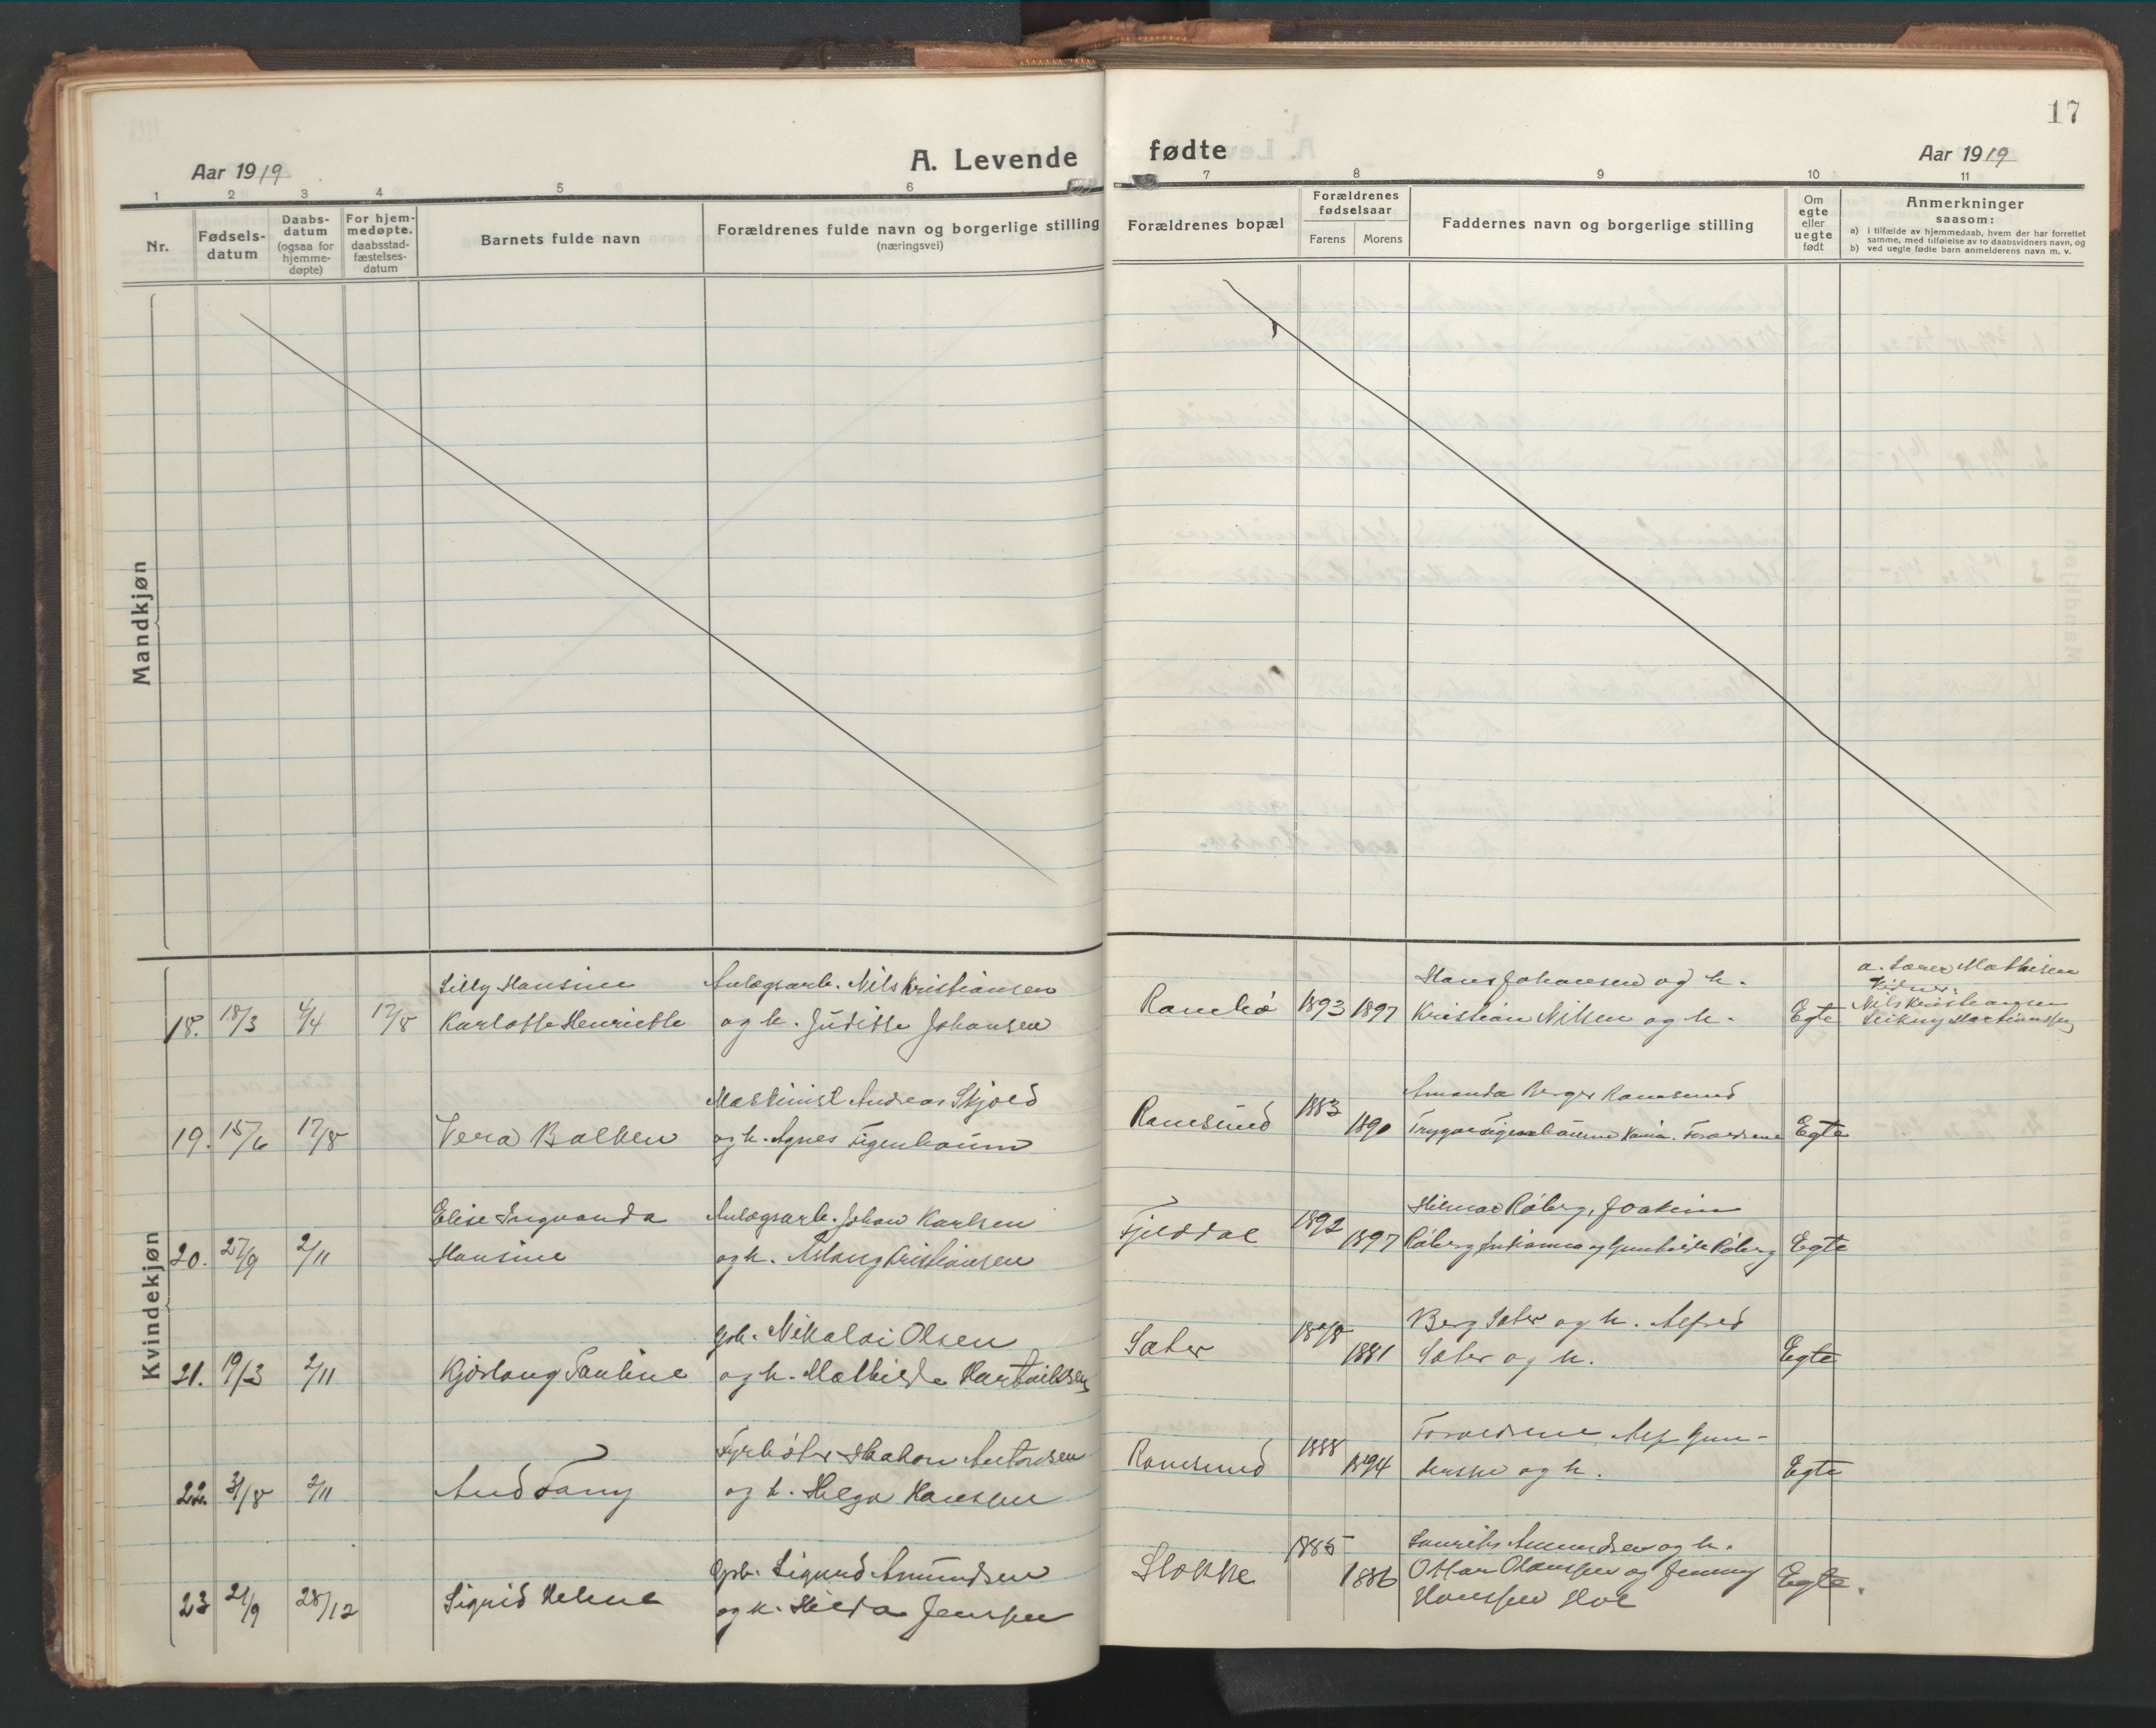 17
Aar 1919
A. Levende
fødte
Aar 1919
1 2 3 4 5 6 7 8 9 10 11
Nr.
Fødsels-
datum
Daabs-
datum
(ogsaa for
hjemme-
døpte)
For hjem-
medøpte,
daabsstad-
fæstelses-
datum
Barnets fulde navn
Forældrenes fulde navn og borgerlige stilling
(næringsvei)
Forældrenes bopæl
Forældrenes
fødselsaar
Farens
Morens
Faddernes navn og borgerlige stilling
Om
egte
eller
uegte
født
Anmerkninger
saasom:
a) i tilfælde av hjemmedaab, hvem der har forrettet
samme, med tilføielse av to daabsvidners navn, og
b) ved uegte fødte barn anmelderens navn m. v.
Mandkjøn
Kvindekjøn
Lilly Hansine Anlægsarb. Nils Kristiansen Hans Johansen og h. a. Lærer Mathisen
18. 18/3 4/4 17/8 Karlotte Henriette og h. Juditte Johansen 1893 1897 Kristian Nilsen og h. Egte Nils Kristiansen
Maskinist Andreas Skjold Amanda Berger Ramsund
19. 15/6 17/8 Vera Balken og h. Agnes Figenbaum Ramsund 1883 1890 Trygve Figenbaum Foreldrene Egte
Elise Ingvanda Anlægsarb. Johan Karlsen Hilmar Røberg, Joakim
20. 27/9 2/11 Hansine og h. Aslaug Kristiansen Fjelddal 1892 1897 Røberg og Gunhilde Røberg Egte
Gbr. Nikolai Olsen Berg Sæter og h. Alfred
21. 19/3 2/11 Kjørlaug Pauline og h. Mathilde Hartviksen Sæter 1878 1881 Sæter og h. Egte
Fyrbøter Haakon Antonsen Foreldrene, Alf Gun-
22. 31/8 2/11 Aud Fany og h. Helga Hanssen Ramsund 1888 1894 og h. Egte
Gbr. Sigurd Amundsen Laurits Amundsen og h.
23 21/9 28/12 Sigrid Helene og h. Hilda Jenssen Stokke 1885 1886 Ottar Hanssen og Jenny Egte.
Hanssen Hol